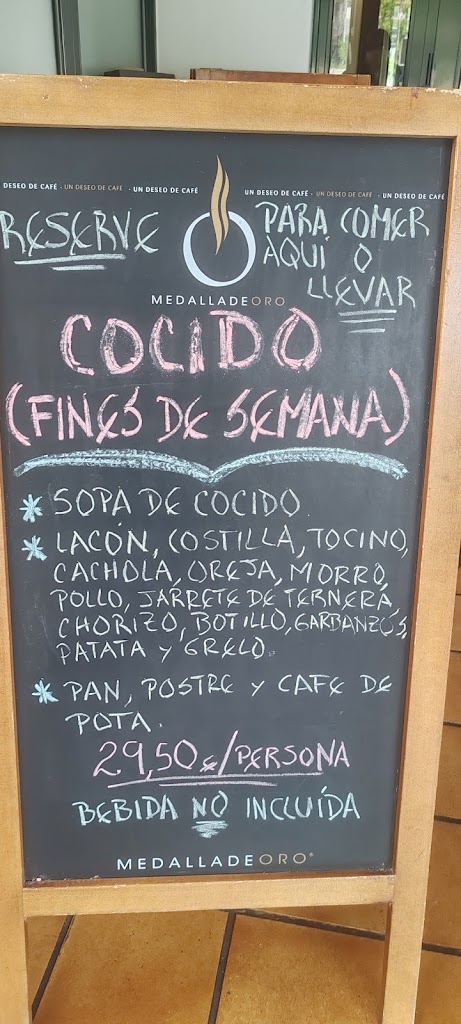 DESEO DE CAFÉ · UN DESEO DE CAFÉ · UN DESEO DE CAFÉ
UN DESEO DE CAFÉ · UN DESEO DE CAFÉ · UN DESEO DE CAFÉ
RESERVE
PARA COMER
AQUÍ O
LLEVAR
MEDALLADEORO
COCIDO
(FINES DE SEMANA)
* SOPA DE COCIDO.
* LACÓN, COSTILLA, TOCINO,
CACHOLA, OREJA, MORRO,
POLLO, JARRETE DE TERNERA,
CHORIZO, BOTILLO, GARBANZOS,
PATATA Y GRELO.
* PAN, POSTRE Y CAFE DE
POTA.
29,50€/PERSONA
BEBIDA NO INCLUÍDA
MEDALLADEORO®